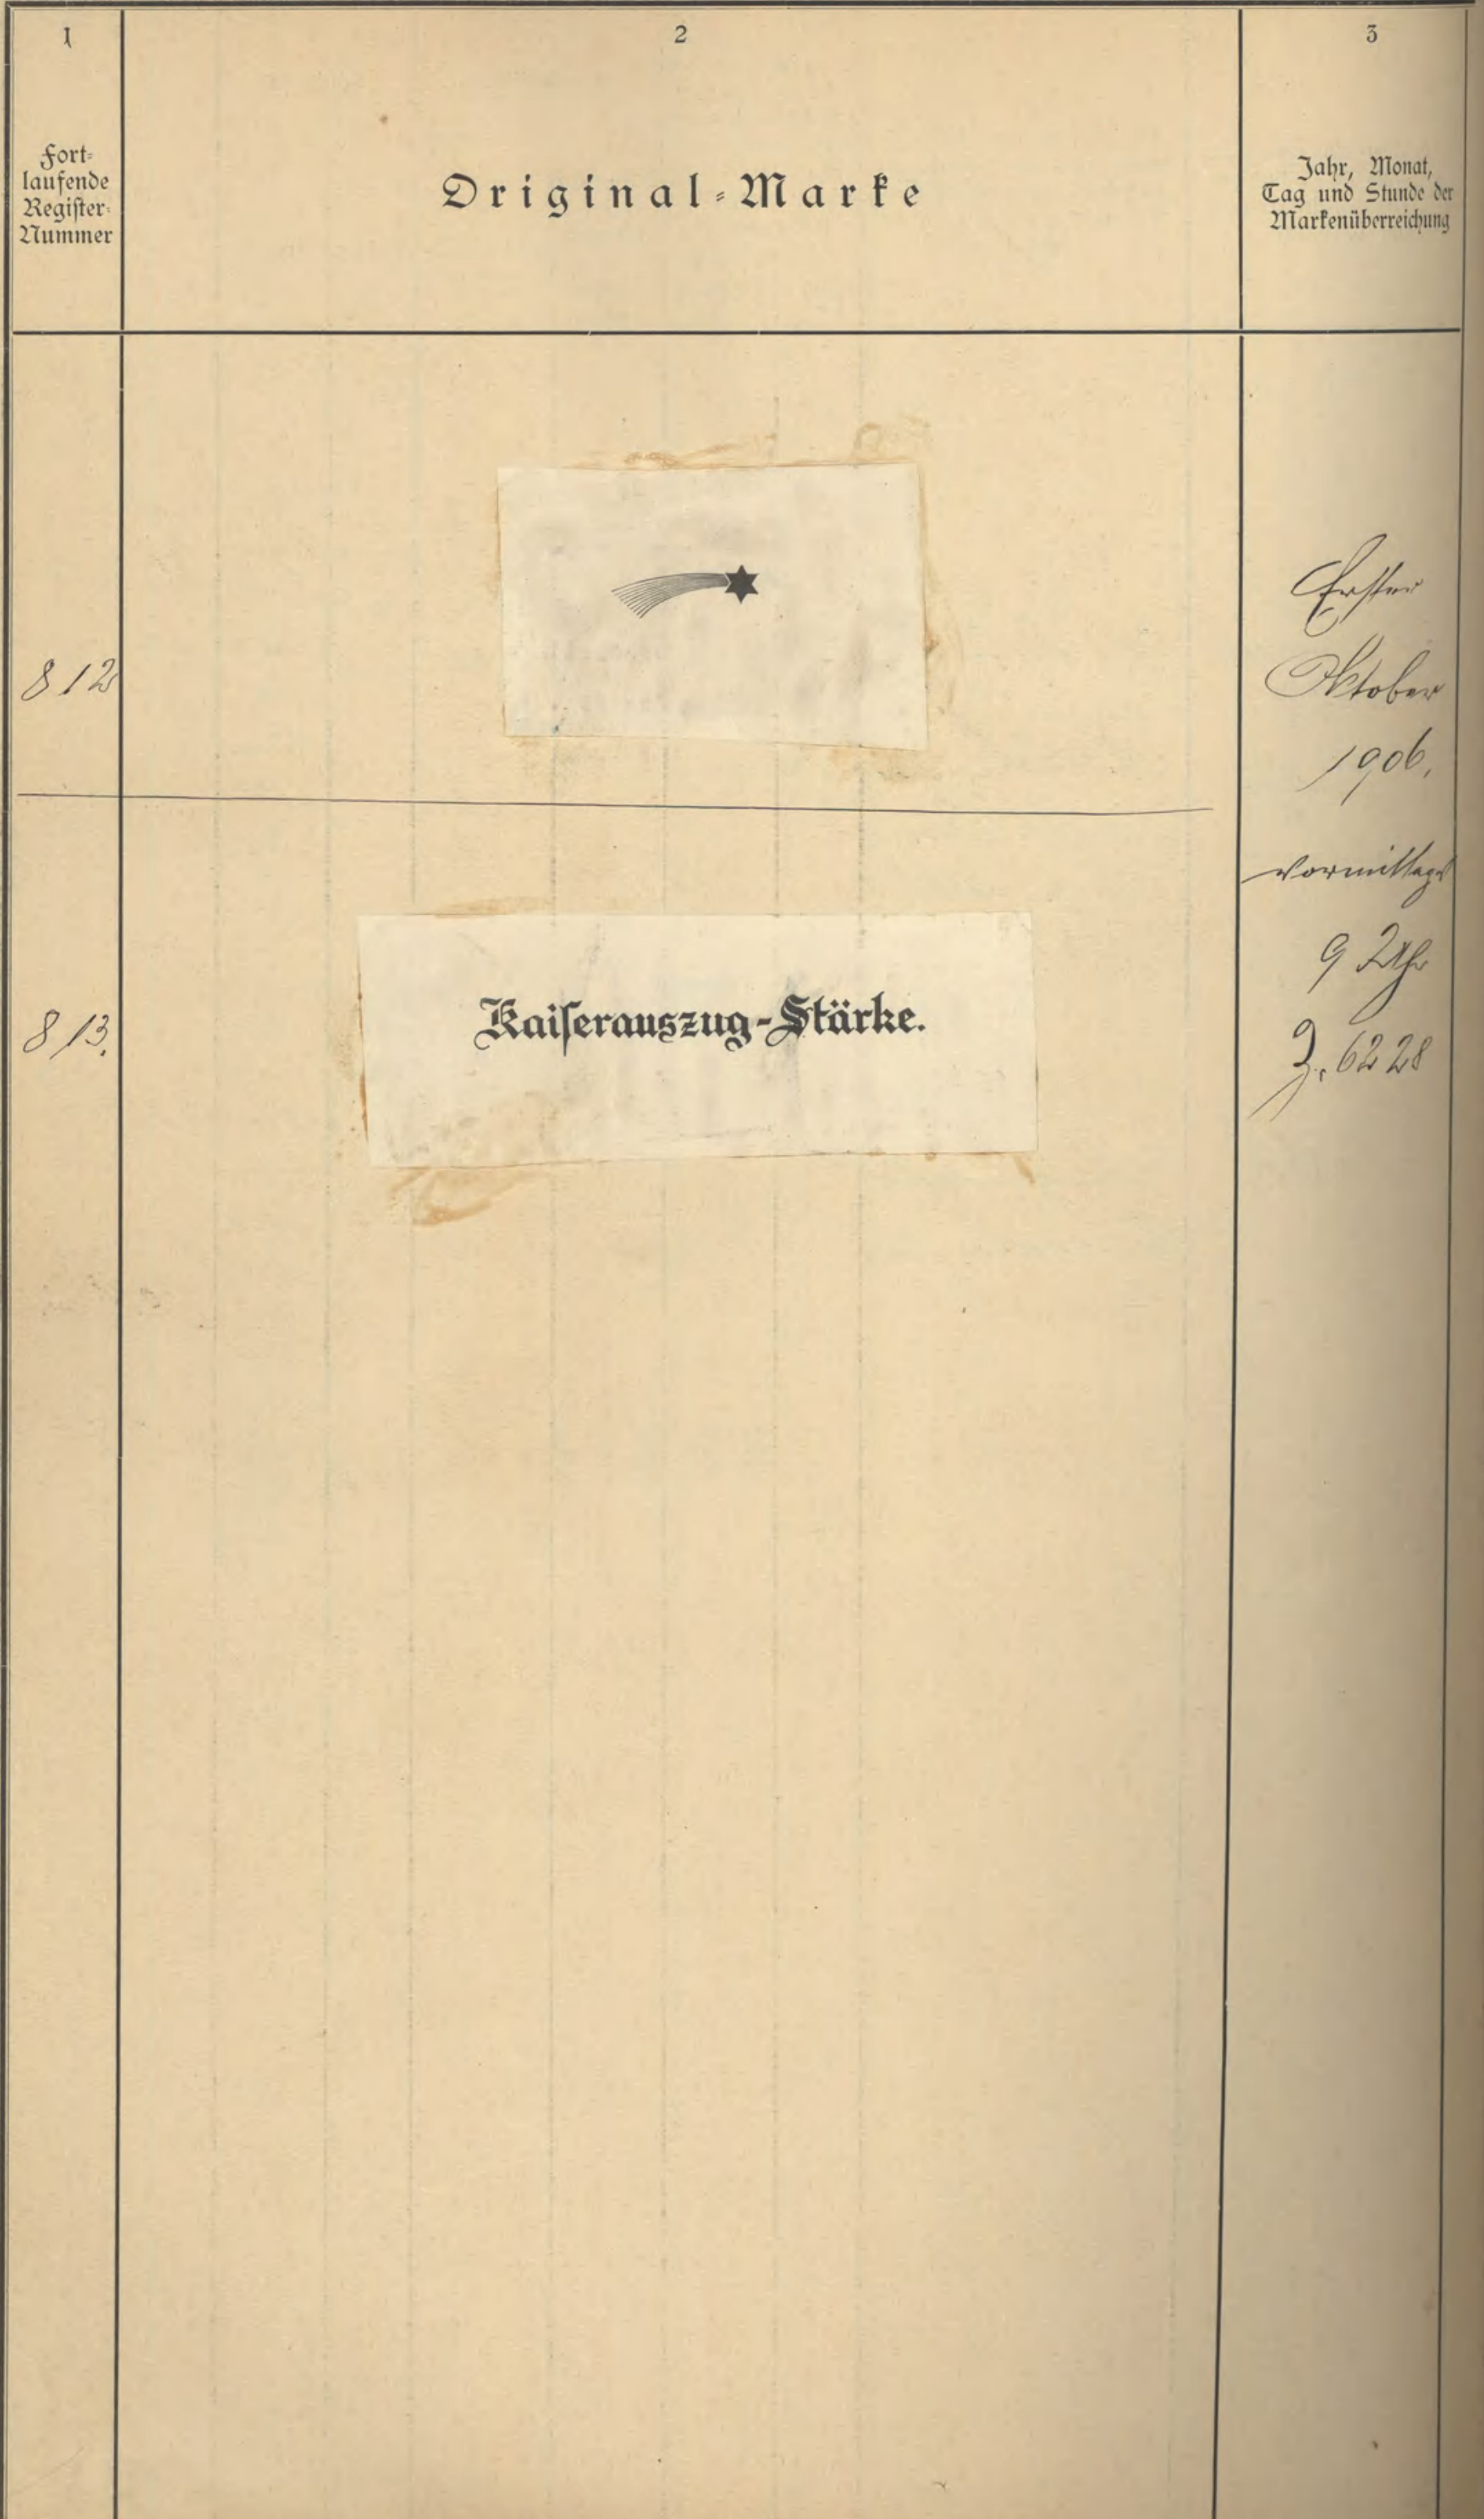 1
2
3
Fort-
laufende
Register-
Nummer
Original-Marke
Jahr, Monat,
Tag und Stunde der
Markenüberreichung
812
Ersten
Oktober
1906.
vormittags
9 Uhr
Z. 6228
813.
Kaiſerauszug-Stärke.